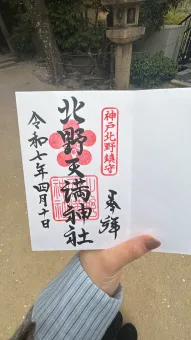 奉拝
神戸北野鎮守
北野天満神社
令和七年四月十日